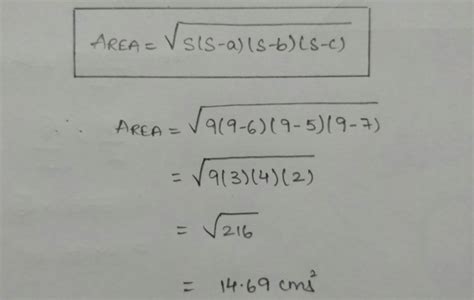 AREA = √S(S-a)(S-b)(S-c)
∴ AREA = √9(9-6)(9-5)(9-7)
= √9(3)(4)(2)
= √216
= 14.69 cms²